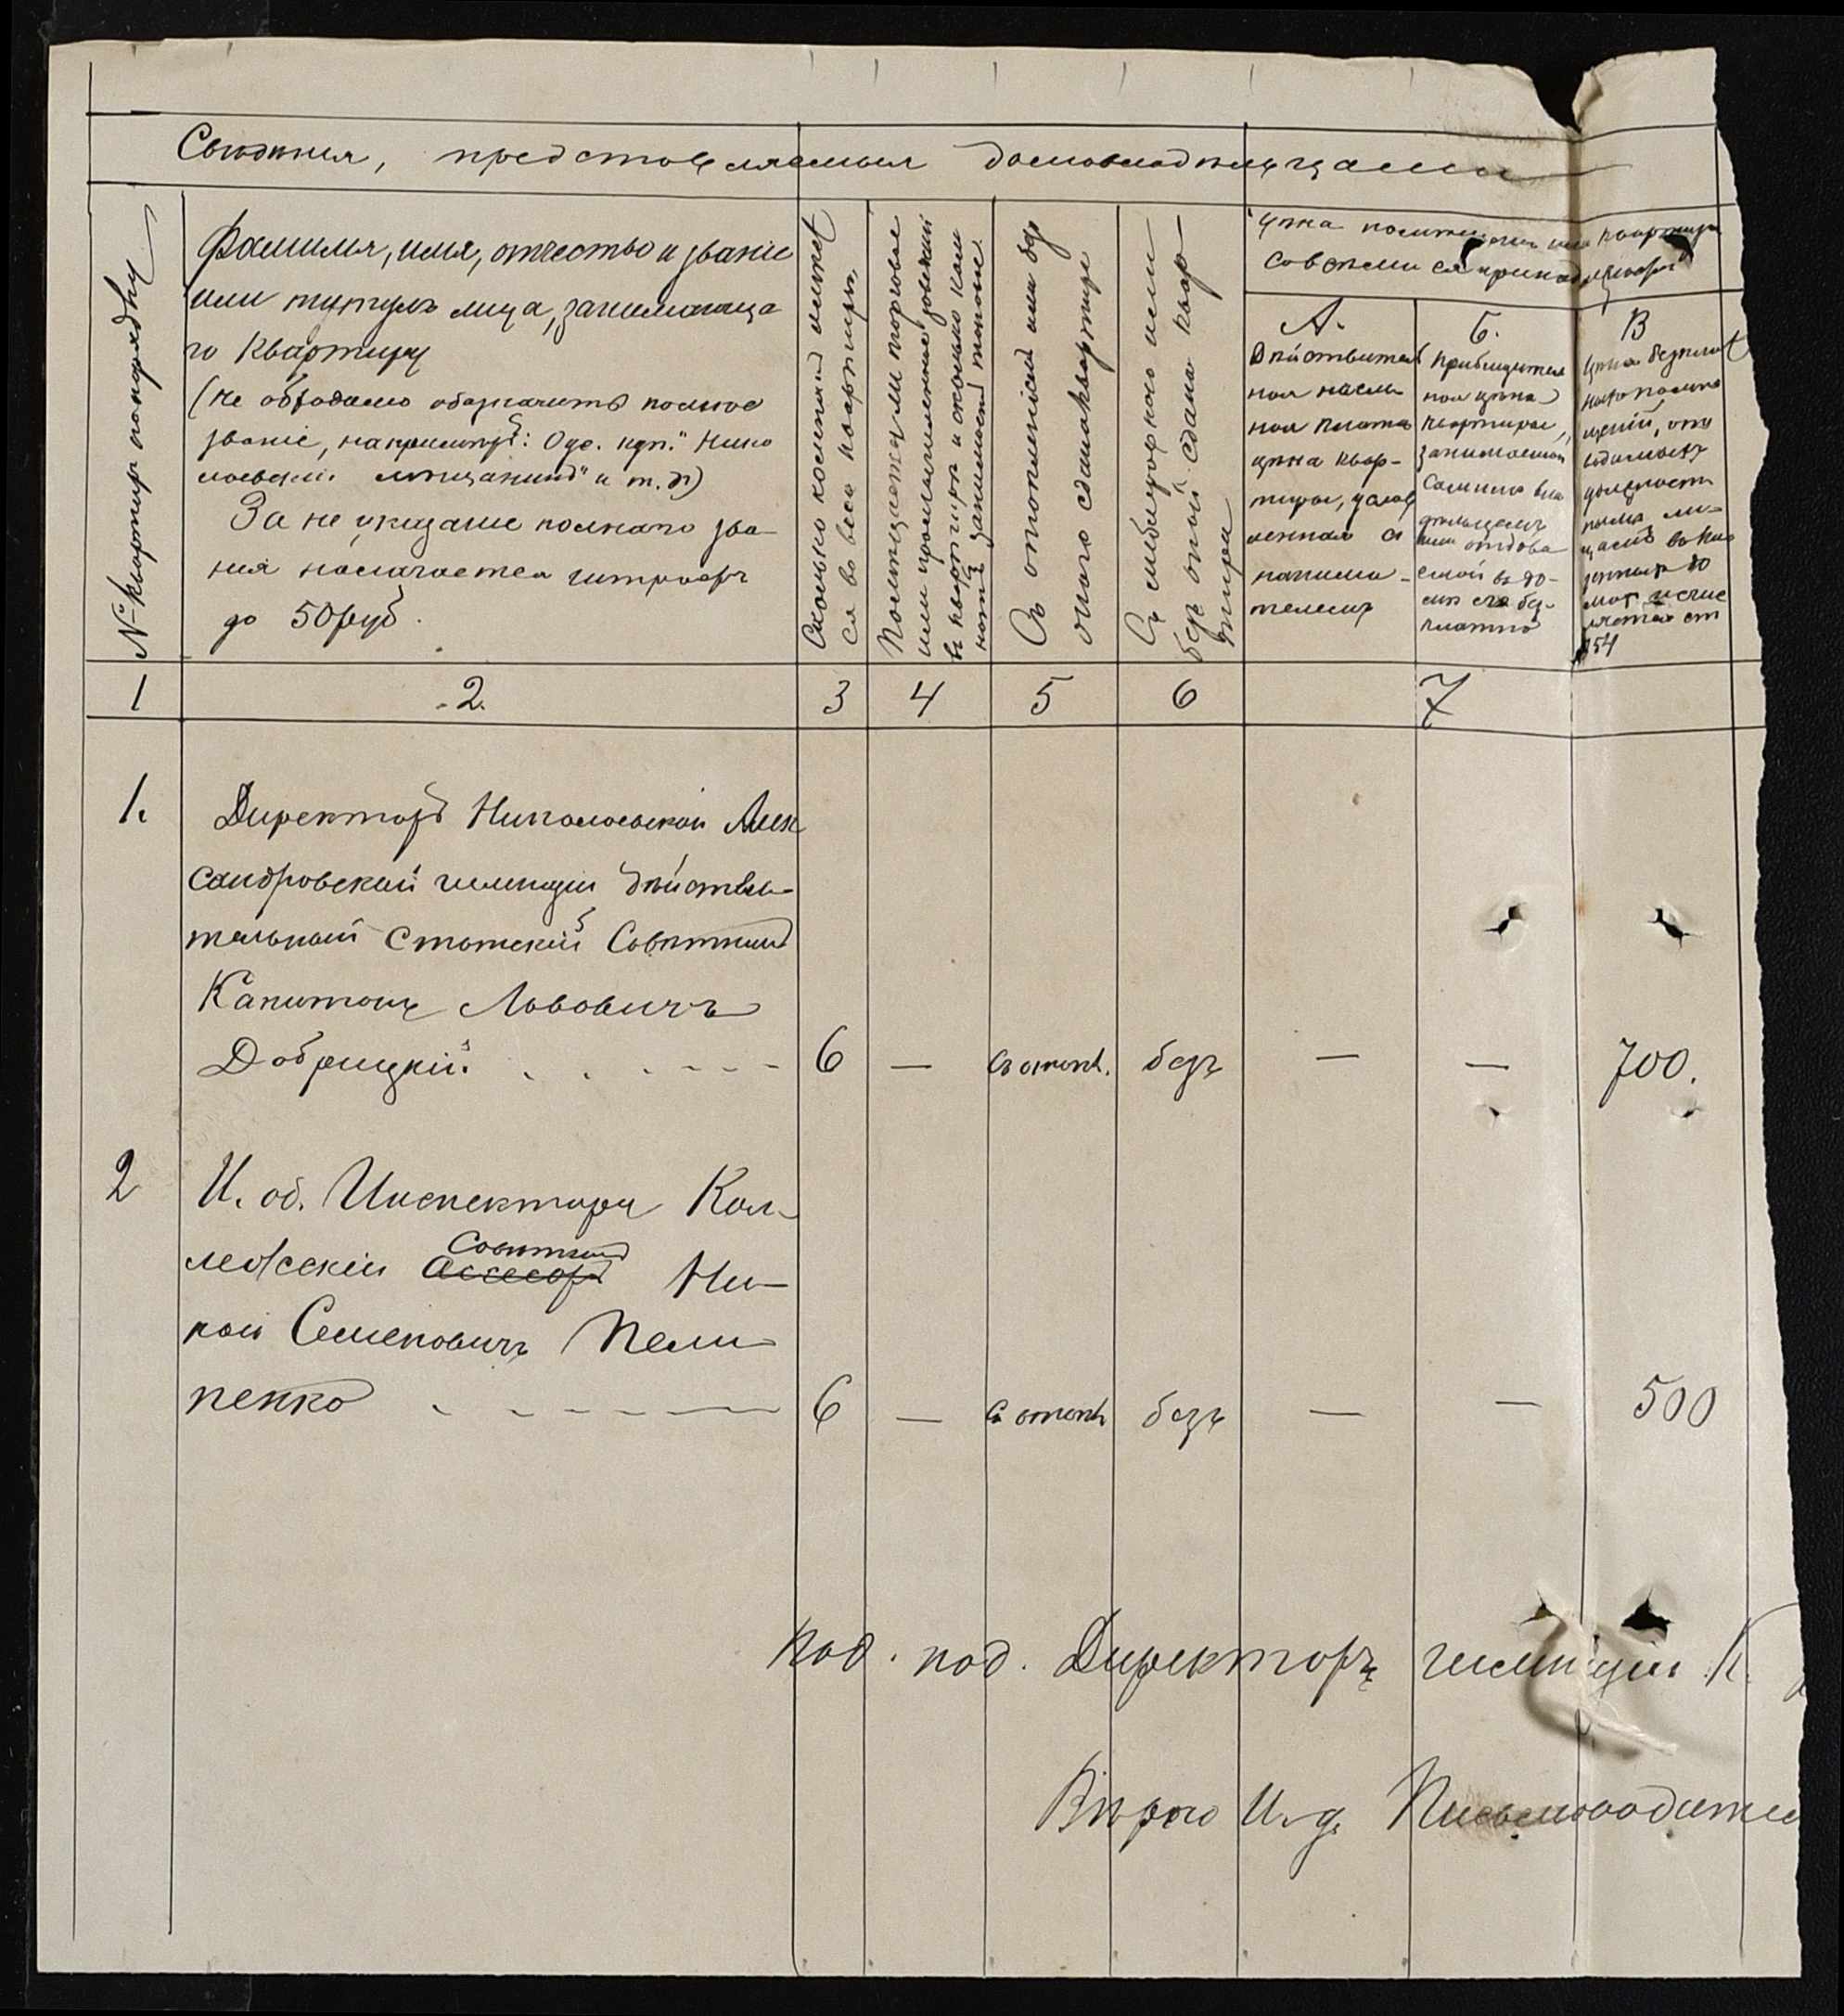 Свѣдѣнія, представляемыя домовладѣльцами
№ квартиръ по порядку
Фамилія, имя, отчество и званіе
или титулъ лица, занимающа
го квартиру
(не обходимо обозначить полное
званіе, напримѣръ: Одес. куп. " Нико
лаевскій мѣщанинъ" и т. д)
За не указаніе полнаго зва-
нія налагается штрафъ
до 50 руб.
Сколько комнатъ имѣет
ся во всей квартирѣ
Помѣщается ли торговое
или промышленное заведеніе
въ квартирѣ и сколько ком
натъ занимаетъ таковое
Съ отопленіемъ или безъ
онаго сдана квартира
Съ мебилировкою или
безъ оной сдана квар-
тира
Цѣна помѣщенія или квартиры
со всѣми
А.
Дѣйствитель
ная наем
ная плата
цѣна квар-
тиры, услов
ленная съ
нанима-
телемъ
Б.
Приблизитель
ная цѣна
квартиры,
занимаемой
самимъ вла
дѣльцемъ
или отдава
емой въ до-
мѣ его без-
платно
В
Цѣна безплат
наго помѣ
щеній, отв
должност
нымъ ли-
цамъ въ ка
зенныхъ до
мах исчис
ляется ст
354
1 2. 3 4 5 6 7
1. Директоръ Николаевской Алек
сандровской гимназіи Дѣйстви-
тельный Статскій Совѣтникъ
Капитонъ Львовичъ
Добрицкій. 6 — съ отопл. безъ — — 700.
2 И. об. Инспектора Кол-
лежскій Ассесоръ Совѣтникъ Ни-
кой Семеновичъ Пели
пенко 6 — съ отопл безъ — — 500
под. под. Директоръ гимназіи К.
Вѣрно И. д. Письмоводителя